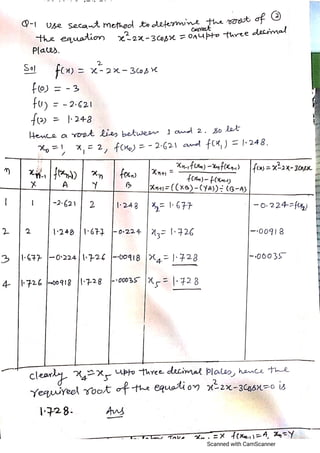 ②
Q-1 Use Secant Method to determine the root of
the equation x²-2x-3cosx = 0 correct upto three decimal
Places.
Sol f(x) = x²-2x-3cosx
f(0) = -3
f(1) = -2.621
f(2) = 1.248
Hence a root lies between 1 and 2. so let
x₀=1, x₁=2, f(x₀) = -2.621 and f(x₁) = 1.248.
n xₙ₋₁ X f(xₙ₋₁) A xₙ Y f(xₙ) B xₙ₊₁ = (xₙ₋₁f(xₙ)-xₙf(xₙ₋₁))/(f(xₙ)-f(xₙ₋₁)) f(x)=x²-2x-3cosx
xₙ₊₁=((XB)-(YA))÷(B-A)
1 1 -2.621 2 1.248 x₂=1.677 -0.224=f(x₂)
2 2 1.248 1.677 -0.224 x₃=1.726 -.00918
3 1.677 -0.224 1.726 -.00918 x₄=1.728 -.00035
4. 1.726 -.00918 1.728 -.00035 x₅=1.728
clearly x₄=x₅ upto three decimal Places, hence the
required root of the equation x²-2x-3cosx=0 is
1.728. Ans
Take xₙ₋₁=X f(xₙ₋₁)=A, xₙ=Y
Scanned with CamScanner